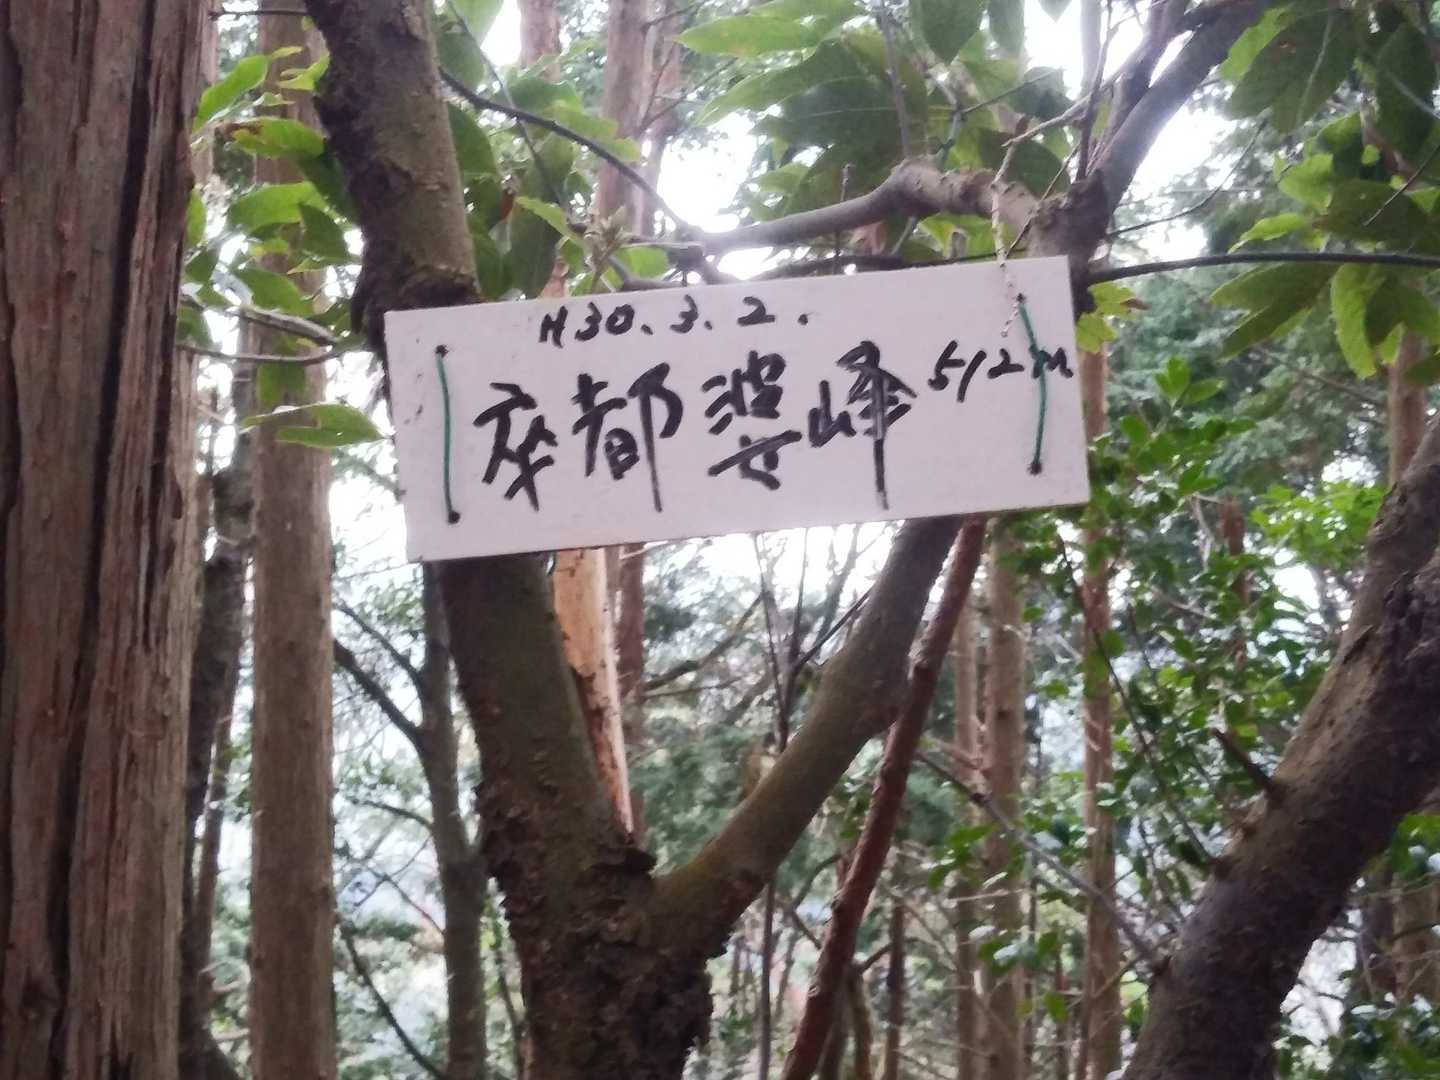 H30.3.2.
卒都婆峰 512m